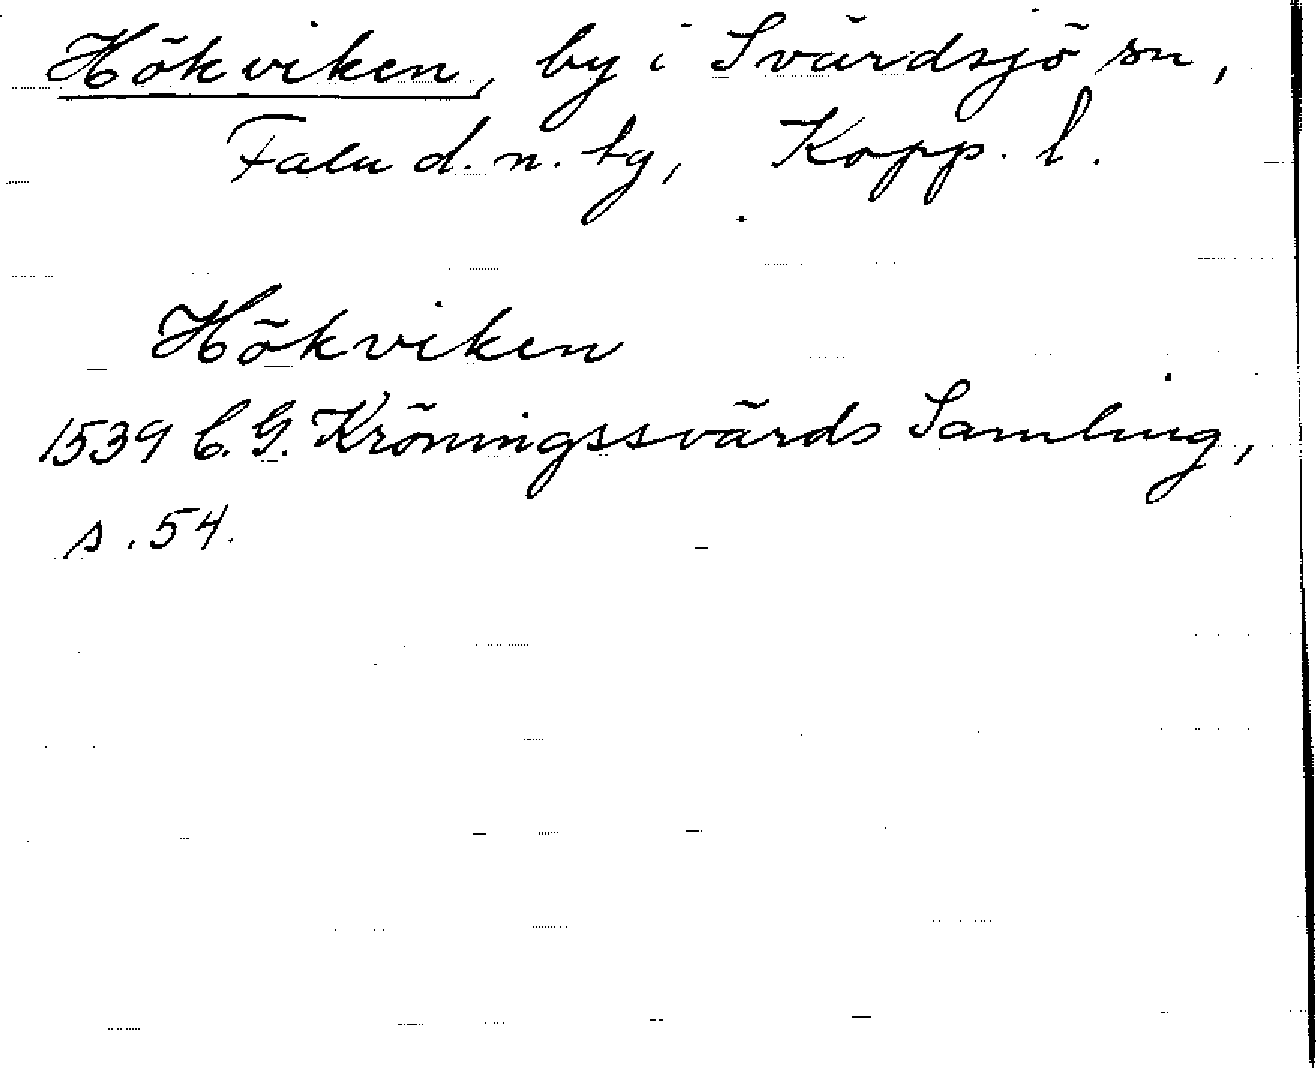 Hökviken, by i Svärdsjö sn,
Falu d. n. tg, Kopp. l.
Hökviken
1539 C. G. Kröningssvärds Samling,
s. 54.